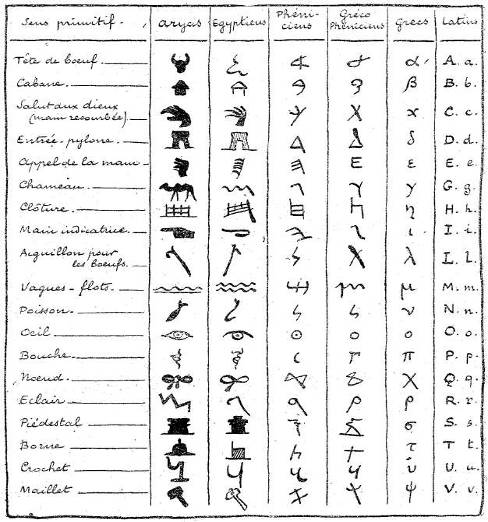 Sens primitif. Aryas Egyptiens Phéniciens Gréco Phéniciens Grecs Latins
Tête de boeuf. α A. a.
Cabane. β B. b.
Salut aux dieux (main recourbée). C. c.
Entrée-pylone. δ D. d.
Appel de la main ε E. e.
Chameau. γ G. g.
Clôture. η H. h.
Main indicatrice. ι I. i.
Aiguillon pour les boeufs. λ L. l.
Vagues-flots. μ M. m.
Poisson. ν N. n.
Oeil ο O. o.
Bouche. π P. p.
Noeud. χ Q. q.
Eclair ρ R. r.
Piédestal σ S. s.
Borne τ T t.
Crochet υ U. u.
Maillet ψ V. v.